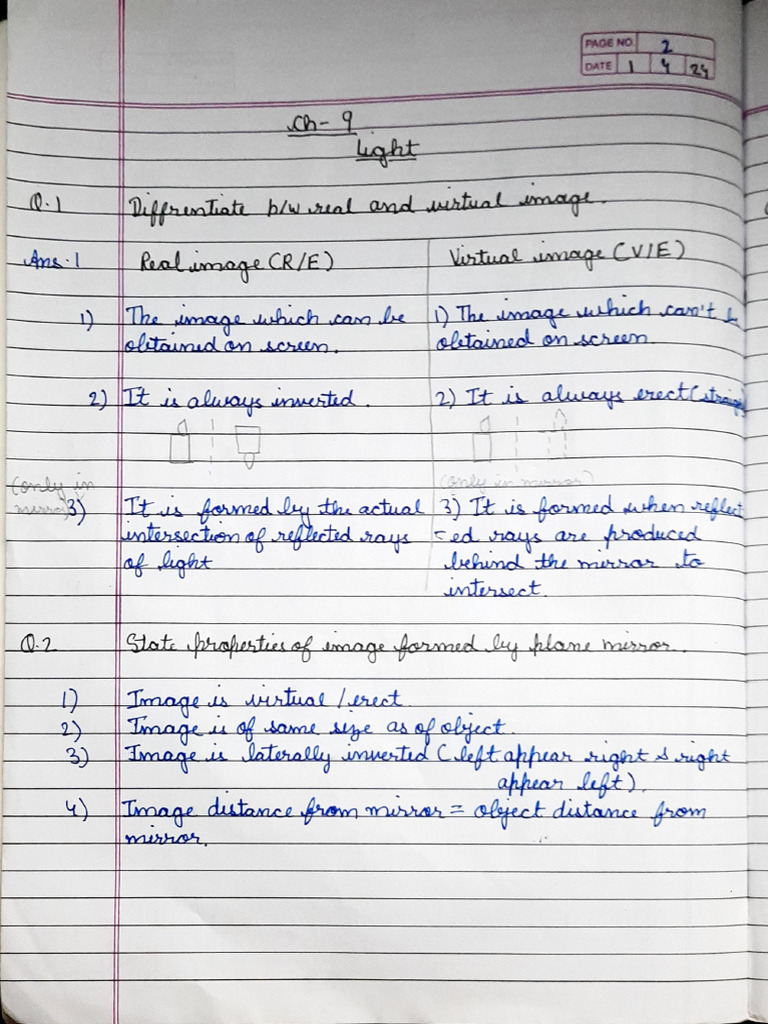 PAGE NO. 2
DATE 1 4 24
Ch- 9
Light
Q.1 Diffrentiate b/w real and virtual image.
Ans.1 Real image (R/E) Virtual image (V/E)
1) The image which can be
obtained on screen.
1) The image which can't b
obtained on screen.
2) It is always inverted.
2) It is always erect (straigh
(only in
mirror)
(only in mirror)
3) It is formed by the actual
intersection of reflected rays
of light
3) It is formed when reflect
=ed rays are produced
behind the mirror to
intersect.
Q.2 State properties of image formed by plane mirror.
1) Image is virtual / erect
2) Image is of same size as of object.
3) Image is laterally inverted (left appear right & right
appear left).
4) Image distance from mirror = object distance from
mirror.